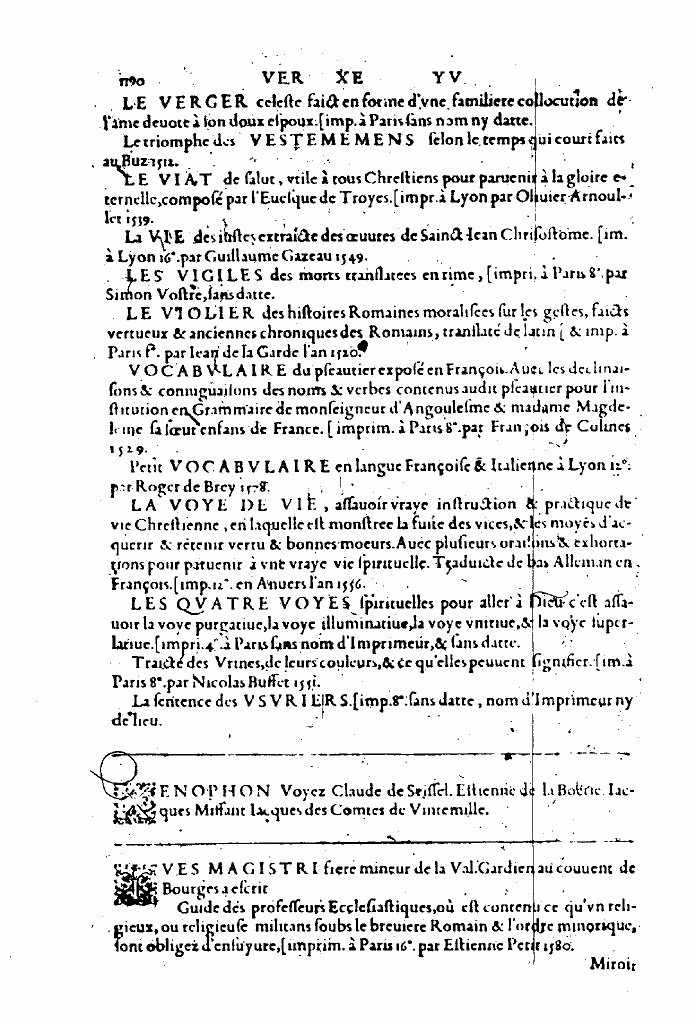 1190 VER XE YV
LE VERGER celeste faict en forme d'vne familiere collocution de
l'ame deuote à son doux espoux. [imp. à Paris sans nom ny datte.
Le triomphe des VESTEMEMENS selon le temps qui court faits
au Buz 1512.
LE VIAT de salut, vtile à tous Chrestiens pour paruenir à la gloire e-
ternelle, composé par l'Euesque de Troyes. [impr. à Lyon par Oliuier Arnoul-
let 1539.
La VIE des iustes extraicte des œuures de Sainct Iean Chrisostome. [im.
à Lyon 16°. par Guillaume Gazeau 1549.
LES VIGILES des morts translatees en rime, [impri. à Paris 8°. par
Simon Vostre, sans datte.
LE VIOLIER des histoires Romaines moralisees sur les gestes, faicts
vertueux & anciennes chroniques des Romains, translaté de latin [ & imp. à
Paris f°. par Iean de la Garde l'an 1520.
VOCABVLAIRE du pseautier exposé en François. Auec les declinai-
sons & coniugaisons des noms & verbes contenus audit pseautier pour l'in-
stitution en Grammaire de monseigneur d'Angoulesme & madame Magde-
leine sa sœur enfans de France. [ imprim. à Paris 8°. par François de Colines
1529.
Petit VOCABVLAIRE en langue Françoise & Italienne à Lyon 12°.
par Roger de Brey 1578.
LA VOYE DE VIE, assauoir vraye instruction & practique de
vie Chrestienne, en laquelle est monstree la fuite des vices, & les moyés d'ac-
querir & retenir vertu & bonnes moeurs. Auec plusieurs oraisons & exhorta-
tions pour paruenir à vne vraye vie spirituelle. Traduicte de bas Alleman en
François. [imp. 12°. en Anuers l'an 1556.
LES QVATRE VOYES spirituelles pour aller à Dieu c'est assa-
uoir la voye purgatiue, la voye illuminatiue, la voye vnitiue, & la voye super-
latiue. [impri. 4°. à Paris sans nom d'Imprimeur, & sans datte.
Traicté des Vrines, de leurs couleurs, & ce qu'elles peuuent signifier. [im. à
Paris 8°. par Nicolas Buffet 1551.
La sentence des VSVRIERS. [imp. 8°. sans datte, nom d'Imprimeur ny
de lieu.
XENOPHON Voyez Claude de Seissel. Estienne de la Boëtie. Iac-
ques Miffant Iacques des Comtes de Vintemille.
YVES MAGISTRI frere mineur de la Val. Gardien au couuent de
Bourges a escrit
Guide des professeurs Ecclesiastiques, où est contenu ce qu'vn reli-
gieux, ou religieuse militans soubs le breuiere Romain & l'ordre minorique,
sont obligez d'ensuyure, [imprim. à Paris 16°. par Estienne Petit 1580.
Miroir